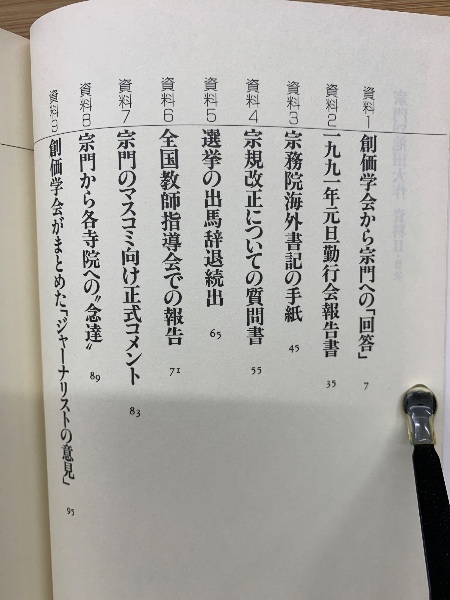 資料1 創価学会から宗門への「回答」 7
資料2 一九九一年元旦勤行会報告書 35
資料3 宗務院海外書記の手紙 45
資料4 宗規改正についての質問書 55
資料5 選挙の出馬辞退続出 65
資料6 全国教師指導会での報告 71
資料7 宗門のマスコミ向け正式コメント 83
資料8 宗門から各寺院への〝念達〟 89
資料9 創価学会がまとめた「ジャーナリストの意見」 95